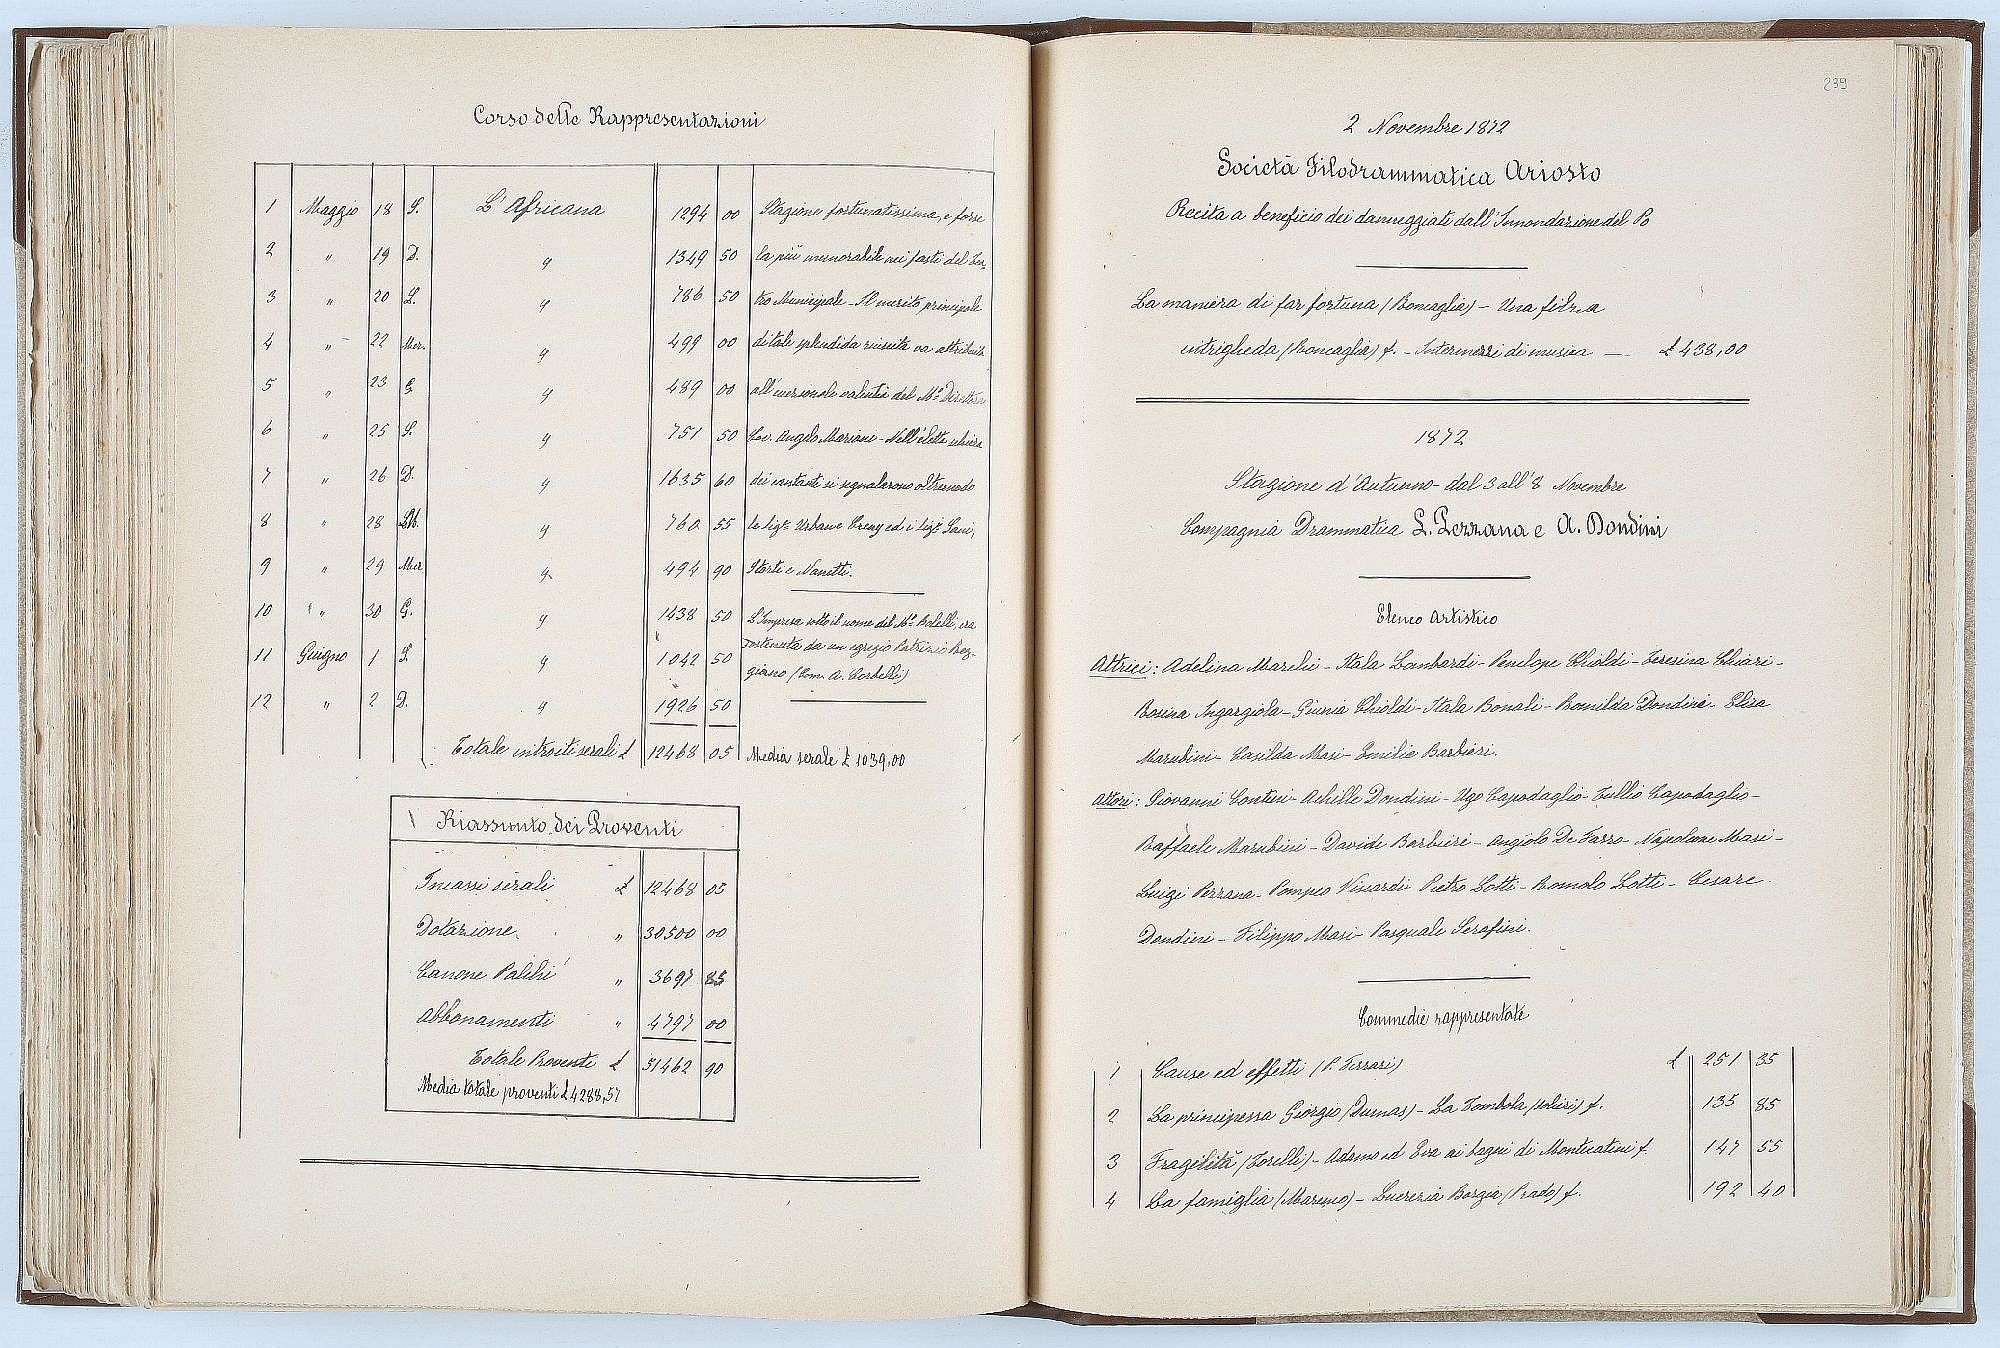 Corso delle Rappresentazioni
1 Maggio 18 S. L'Africana 1294 00 Stagione fortunatissima, e forse
2 " 19 D. " 1349 50 la più memorabile nei fasti del Tea-
3 " 20 L. " 786 50 tro Municipale - Il merito principale
4 " 22 Mer. " 499 00 di tale splendida riuscita va attribuita
5 " 23 G. " 489 00 all'eccezionale valentia del Mº Direttore
6 " 25 S. " 751 50 Cav. Angelo Mariani - Nell'eletta schiera
7 " 26 D. " 1635 60 dei cantanti si segnalarono oltremodo
8 " 28 " 760 55 le Sigre Urban e Creny ed i Sigri Sani,
9 " 29 Mer " 494 90 Storti e Nanetti.
10 " 30 G. " 1438 50 L'Impresa sotto il nome del Mº Bolelli, era
11 Guigno 1 S. " 1042 50 sostenuta da un egregio Patrizio Reg-
giano (Com. A. Cordelli)
12 " 2 D. " 1926 50
Totale introiti serali £ 12468 05 Media serale £ 1039,00
Riassunto dei Proventi
Incassi serali £ 12468 05
Dotazione " 30500 00
Canone Palchi " 3697 85
Abbonamenti " 4797 00
Totale Proventi £ 51462 90
Media totale proventi £ 4288,57
239
2 Novembre 1872
Società Filodrammatica Ariosto
Recita a beneficio dei danneggiati dall'Innondazione del Po
La maniera di far fortuna (Roncaglia) - Una filza
intrigheda (Roncaglia) f. - Intermezzi di musica — £ 438,00
1872
Stagione d'Autunno - dal 3 all'8 Novembre
Compagnia Drammatica L. Pezzana e A. Dondini
Elenco Artistico
Attrici: Adelina Marchi - Itala Lombardi - Penelope Chioldi - Teresina Chiari -
Rosina Ingargiola - Giunia Chioldi - Itala Bonali - Romilda Dondini - Elisa
Marubini - Casilda Masi - Emilia Barbieri.
Attori: Giovanni Conteri - Achille Dondini - Ugo Capodaglio - Tullio Capodaglio -
Raffaele Marubini - Davide Barbieri - Angiolo De Farro - Napoleone Masi -
Luigi Pezzana - Pompeo Vivardi Pietro Lotti - Romolo Lotti - Cesare
Dondini - Filippo Masi - Pasquale Serafini.
Commedie rappresentate
1 Cause ed effetti (P. Ferrari) £ 251 35
2 La principessa Giorgio (Dumas) - La Tombola f. 135 85
3 Fragilità (Torelli) - Adamo ed Eva ai bagni di Montecatini f. 147 55
4 La famiglia (Marenco) - Lucrezia Borgia (Prado) f. 192 40